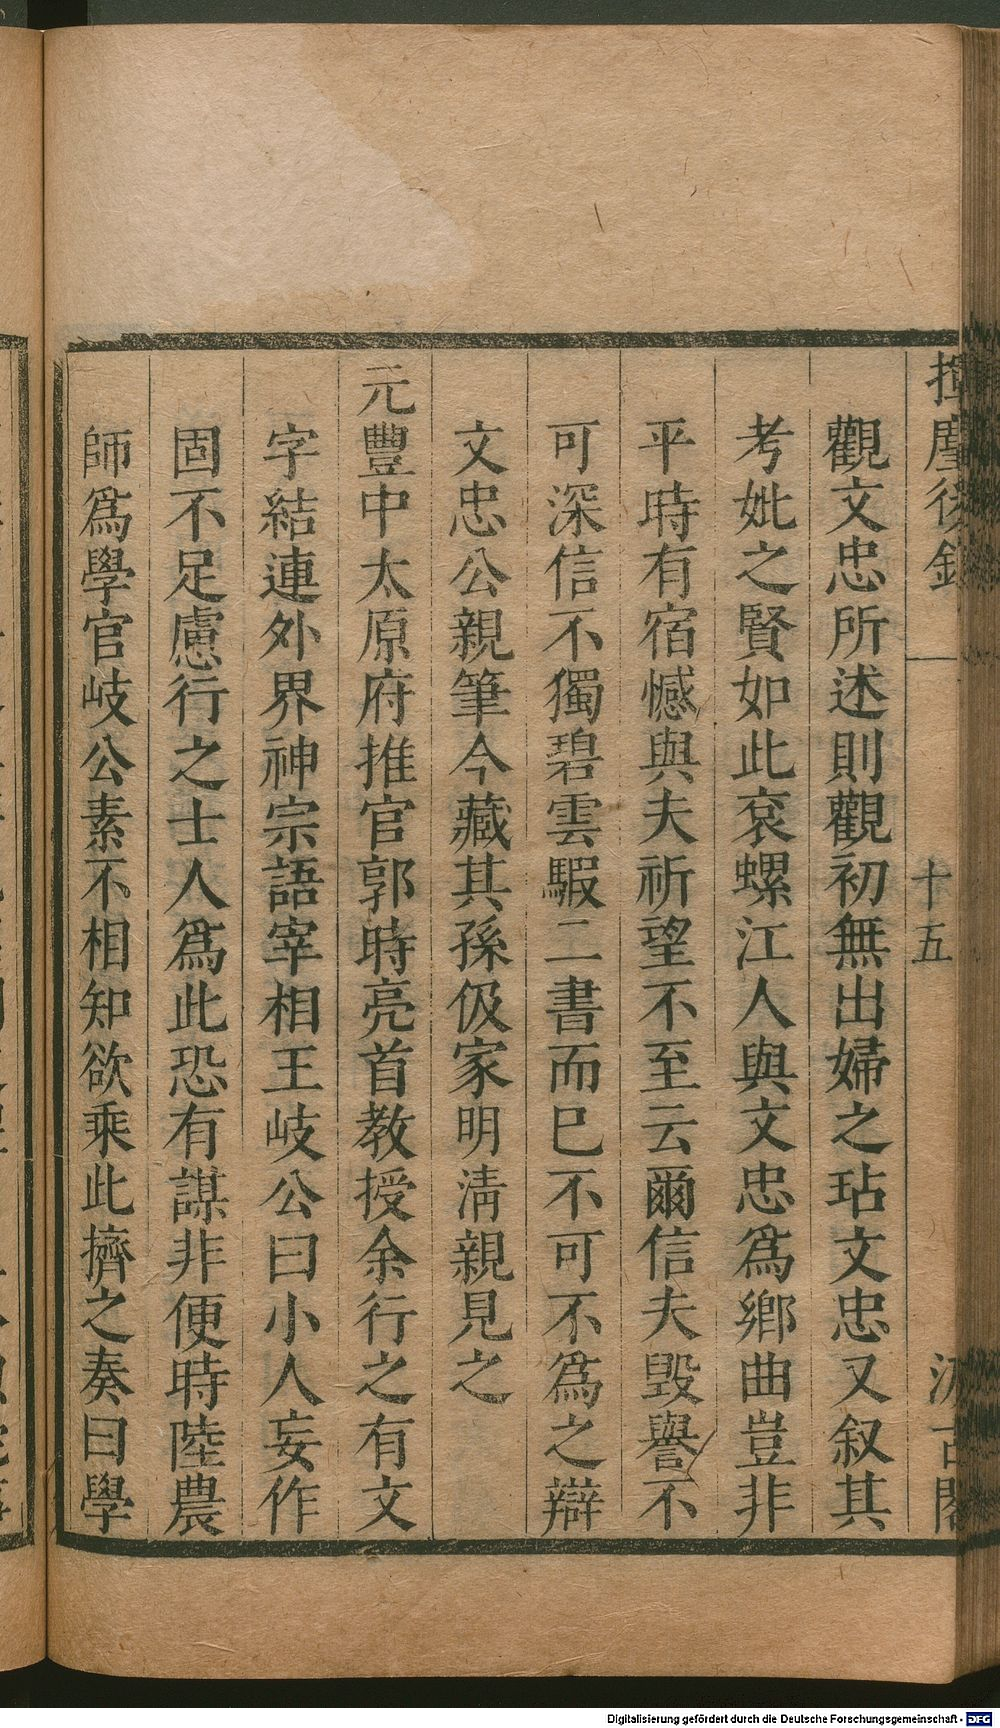 揮麈後錄 十五 汲古閣
觀文忠所述則觀初無出婦之玷文忠又叙其
考妣之賢如此裒螺江人與文忠爲鄉曲豈非
平時有宿憾與夫祈望不至云爾信夫毀譽不
可深信不獨碧雲騢二書而已不可不爲之辯
文忠公親筆今藏其孫伋家明清親見之
元豐中太原府推官郭時亮首教授余行之有文
字結連外界神宗語宰相王岐公曰小人妄作
固不足慮行之士人爲此恐有謀非便時陸農
師爲學官岐公素不相知欲乘此擠之奏曰學
Digitalisierung gefördert durch die Deutsche Forschungsgemeinschaft - DFG